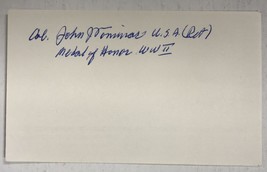 Col. John J Tominac U.S.A (Ret)
Medal of Honor WW II